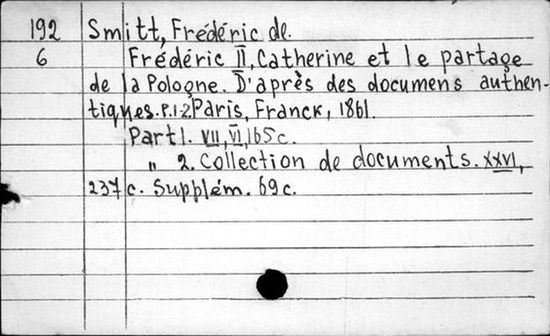 192 Smitt, Frédéric de.
6 Frédéric II, Catherine et le partage
de la Pologne. D'après des documens authen-
tiques. P.1-2. Paris, Franck, 1861.
Part 1. VII, VI, 165 c.
" 2. Collection de documents. XXVI,
237 c. Supplém. 69 c.